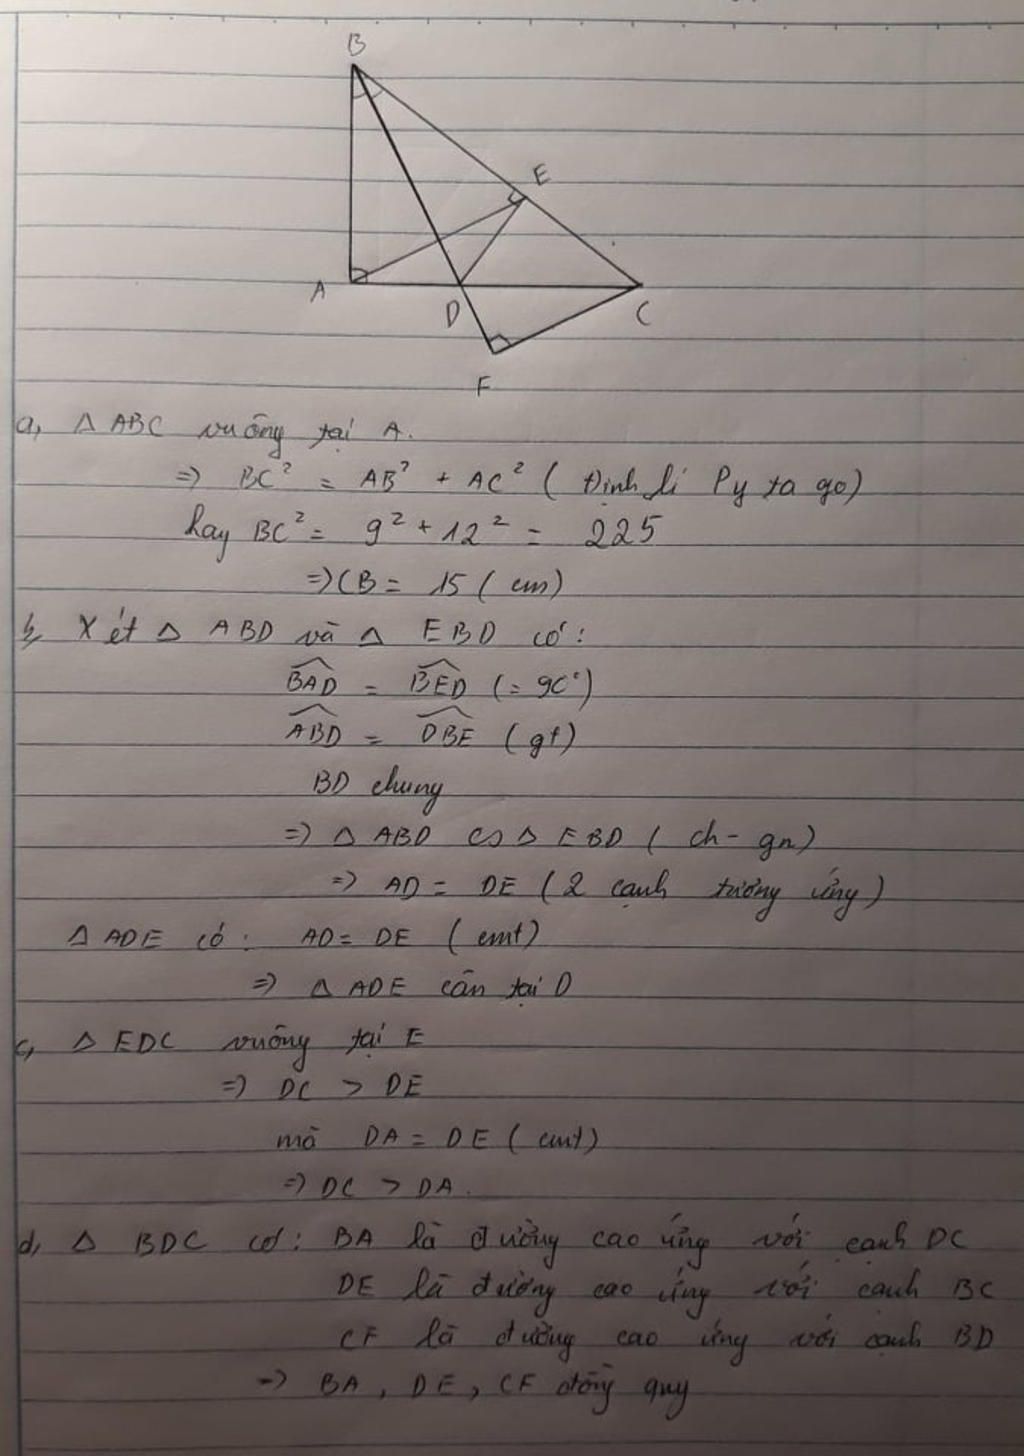 B
E
A
D
C
F
a, Δ ABC vuông tại A.
=> BC² = AB² + AC² ( Định lí Py ta go)
hay BC² = 9² + 12² = 225
=> CB = 15 ( cm)
b, Xét Δ ABD và Δ EBD có:
\widehat{BAD} = \widehat{BED} (= 90°)
\widehat{ABD} = \widehat{DBE} (gt)
BD chung
=> Δ ABD ∽ Δ EBD ( ch - gn)
=> AD = DE ( 2 cạnh tương ứng )
Δ ADE có : AD = DE ( cmt)
=> Δ ADE cân tại D
c, Δ EDC vuông tại E
=> DC > DE
mà DA = DE ( cmt)
=> DC > DA.
d, Δ BDC có: BA là đường cao ứng với cạnh DC
DE là đường cao ứng với cạnh BC
CF là đường cao ứng với cạnh BD
=> BA, DE, CF đồng quy